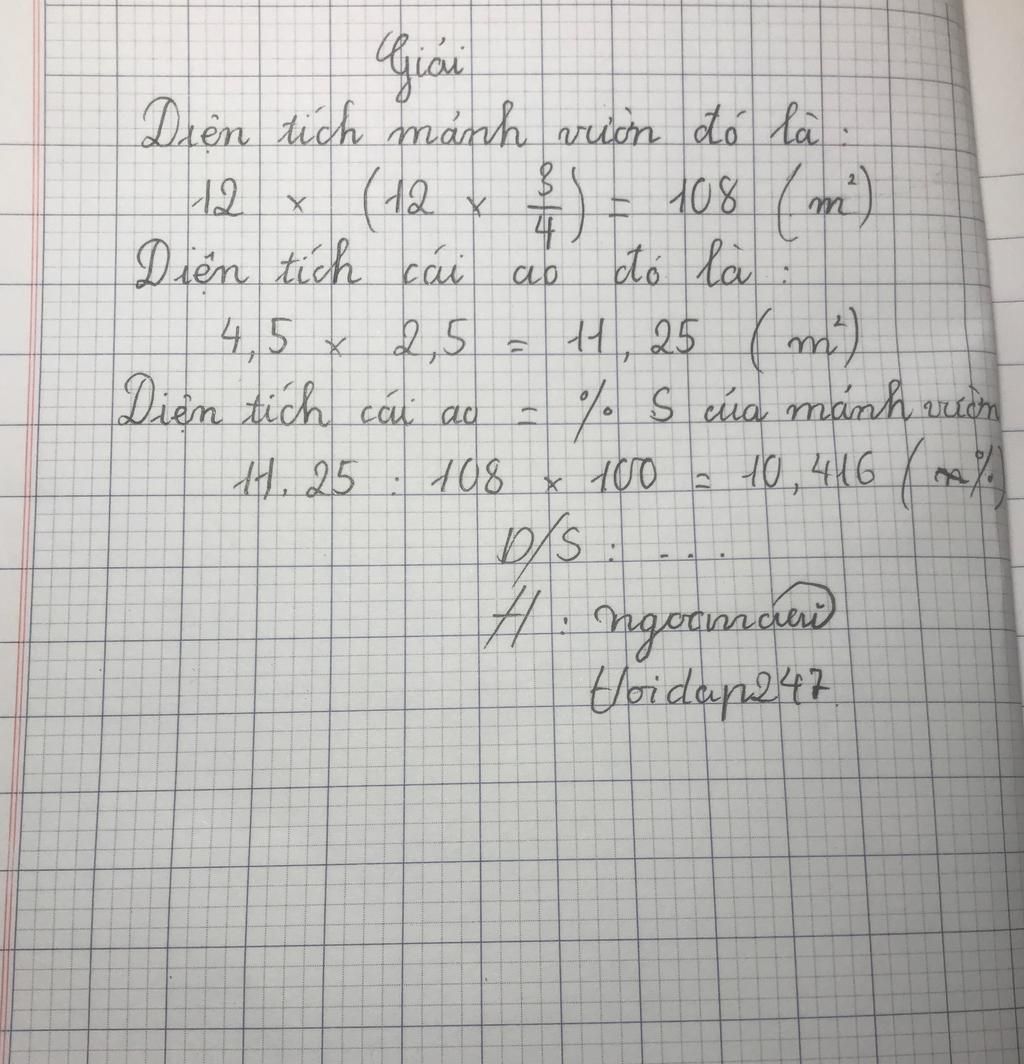 Giải
Diện tích mảnh vườn đó là :
12 × (12 × 3/4) = 108 (m²)
Diện tích cái ao đó là :
4,5 × 2,5 = 11,25 (m²)
Diện tích cái ao = % S của mảnh vườn
11.25 : 108 × 100 = 10,416 (%)
Đ/S : ...
H :
hoidap247